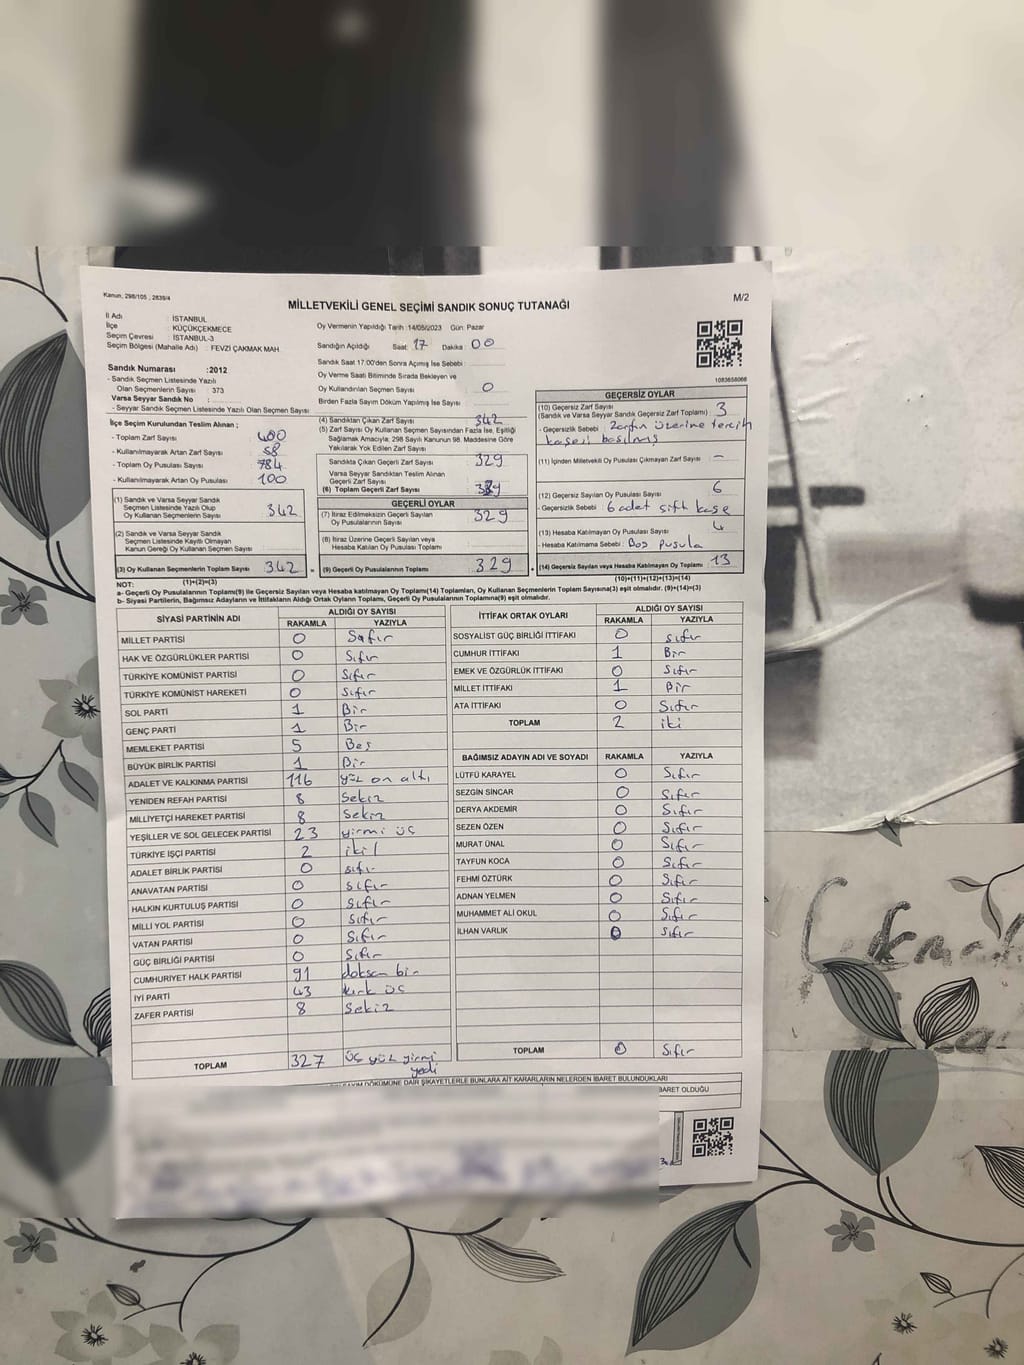 Kanun; 298/105 , 2839/4
MİLLETVEKİLİ GENEL SEÇİMİ SANDIK SONUÇ TUTANAĞI
M/2
İl Adı : İSTANBUL
İlçe : KÜÇÜKÇEKMECE
Seçim Çevresi : İSTANBUL-3
Seçim Bölgesi (Mahalle Adı) : FEVZİ ÇAKMAK MAH.
Oy Vermenin Yapıldığı Tarih :14/05/2023 Gün: Pazar
Sandığın Açıldığı Saat: 17 Dakika: 00
Sandık Saat 17.00'den Sonra Açımış İse Sebebi :
Oy Verme Saati Bitiminde Sırada Bekleyen ve
Oy Kullandırılan Seçmen Sayısı 0
Birden Fazla Sayım Döküm Yapılmış İse Sayısı :
1083658068
Sandık Numarası :2012
- Sandık Seçmen Listesinde Yazılı
Olan Seçmenlerin Sayısı : 373
Varsa Seyyar Sandık No :
- Seyyar Sandık Seçmen Listesinde Yazılı Olan Seçmen Sayısı
İlçe Seçim Kurulundan Teslim Alınan ;
- Toplam Zarf Sayısı 400
- Kullanılmayarak Artan Zarf Sayısı 58
- Toplam Oy Pusulası Sayısı 784
- Kullanılmayarak Artan Oy Pusulası 100
(1) Sandık ve Varsa Seyyar Sandık
Seçmen Listesinde Yazılı Olup
Oy Kullanan Seçmenlerin Sayısı 342
(2) Sandık ve Varsa Seyyar Sandık
Seçmen Listesinde Kayıtlı Olmayan
Kanun Gereği Oy Kullanan Seçmen Sayısı
(3) Oy Kullanan Seçmenlerin Toplam Sayısı 342 =
(1)+(2)=(3)
(4) Sandıktan Çıkan Zarf Sayısı 342
(5) Zarf Sayısı Oy Kullanan Seçmen Sayısından Fazla İse, Eşitliği
Sağlamak Amacıyla, 298 Sayılı Kanunun 98. Maddesine Göre
Yakılarak Yok Edilen Zarf Sayısı
Sandıkta Çıkan Geçerli Zarf Sayısı 329
Varsa Seyyar Sandıktan Teslim Alınan
Geçerli Zarf Sayısı
(6) Toplam Geçerli Zarf Sayısı 329
GEÇERLİ OYLAR
(7) İtiraz Edilmeksizin Geçerli Sayılan
Oy Pusulalarının Sayısı 329
(8) İtiraz Üzerine Geçerli Sayılan veya
Hesaba Katılan Oy Pusulası Toplamı
(9) Geçerli Oy Pusulalarının Toplamı 329 +
GEÇERSİZ OYLAR
(10) Geçersiz Zarf Sayısı 3
(Sandık ve Varsa Seyyar Sandık Geçersiz Zarf Toplamı)
- Geçersizlik Sebebi : Zarfın üzerine tercih
kaşesi basılmış
(11) İçinden Milletvekili Oy Pusulası Çıkmayan Zarf Sayısı -
(12) Geçersiz Sayılan Oy Pusulası Sayısı 6
- Geçersizlik Sebebi : 6 adet çift kaşe
(13) Hesaba Katılmayan Oy Pusulası Sayısı 4
- Hesaba Katılmama Sebebi : Boş pusula
(14) Geçersiz Sayılan veya Hesaba Katılmayan Oy Toplamı 13
(10)+(11)+(12)+(13)=(14)
NOT:
a- Geçerli Oy Pusulalarının Toplamı(9) ile Geçersiz Sayılan veya Hesaba katılmayan Oy Toplamı(14) Toplamları, Oy Kullanan Seçmenlerin Toplam Sayısına(3) eşit olmalıdır. (9)+(14)=(3)
b- Siyasi Partilerin, Bağımsız Adayların ve İttifakların Aldığı Ortak Oyların Toplamı, Geçerli Oy Pusulalarının Toplamına(9) eşit olmalıdır.
SİYASİ PARTİNİN ADI ALDIĞI OY SAYISI
RAKAMLA YAZIYLA
MİLLET PARTİSİ 0 Safır
HAK VE ÖZGÜRLÜKLER PARTİSİ 0 Sıfır
TÜRKİYE KOMÜNİST PARTİSİ 0 Sıfır
TÜRKİYE KOMÜNİST HAREKETİ 0 Sıfır
SOL PARTİ 1 Bir
GENÇ PARTİ 1 Bir
MEMLEKET PARTİSİ 5 Beş
BÜYÜK BİRLİK PARTİSİ 1 Bir
ADALET VE KALKINMA PARTİSİ 116 yüz on altı
YENİDEN REFAH PARTİSİ 8 Sekiz
MİLLİYETÇİ HAREKET PARTİSİ 8 Sekiz
YEŞİLLER VE SOL GELECEK PARTİSİ 23 yirmi üç
TÜRKİYE İŞÇİ PARTİSİ 2 iki
ADALET BİRLİK PARTİSİ 0 sıfır
ANAVATAN PARTİSİ 0 sıfır
HALKIN KURTULUŞ PARTİSİ 0 sıfır
MİLLİ YOL PARTİSİ 0 Sıfır
VATAN PARTİSİ 0 Sıfır
GÜÇ BİRLİĞİ PARTİSİ 0 Sıfır
CUMHURİYET HALK PARTİSİ 91 doksan bir
İYİ PARTİ 43 kırk üç
ZAFER PARTİSİ 8 Sekiz
TOPLAM 327 üç yüz yirmi
yedi
İTTİFAK ORTAK OYLARI ALDIĞI OY SAYISI
RAKAMLA YAZIYLA
SOSYALİST GÜÇ BİRLİĞİ İTTİFAKI 0 sıfır
CUMHUR İTTİFAKI 1 Bir
EMEK VE ÖZGÜRLÜK İTTİFAKI 0 Sıfır
MİLLET İTTİFAKI 1 Bir
ATA İTTİFAKI 0 Sıfır
TOPLAM 2 iki
BAĞIMSIZ ADAYIN ADI VE SOYADI RAKAMLA YAZIYLA
LÜTFÜ KARAYEL 0 Sıfır
SEZGİN SİNCAR 0 Sıfır
DERYA AKDEMİR 0 Sıfır
SEZEN ÖZEN 0 Sıfır
MURAT ÜNAL 0 Sıfır
TAYFUN KOCA 0 Sıfır
FEHMİ ÖZTÜRK 0 Sıfır
ADNAN YELMEN 0 Sıfır
MUHAMMET ALİ OKUL 0 Sıfır
İLHAN VARLIK 0 sıfır
TOPLAM 0 Sıfır
SAYIM DÖKÜMÜNE DAİR ŞİKAYETLERLE BUNLARA AİT KARARLARIN NELERDEN İBARET BULUNDUKLARI
BARET OLDUĞU